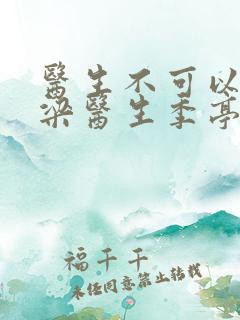 醫生不可以
梁醫生季亭
福千千
未經同意禁止轉載